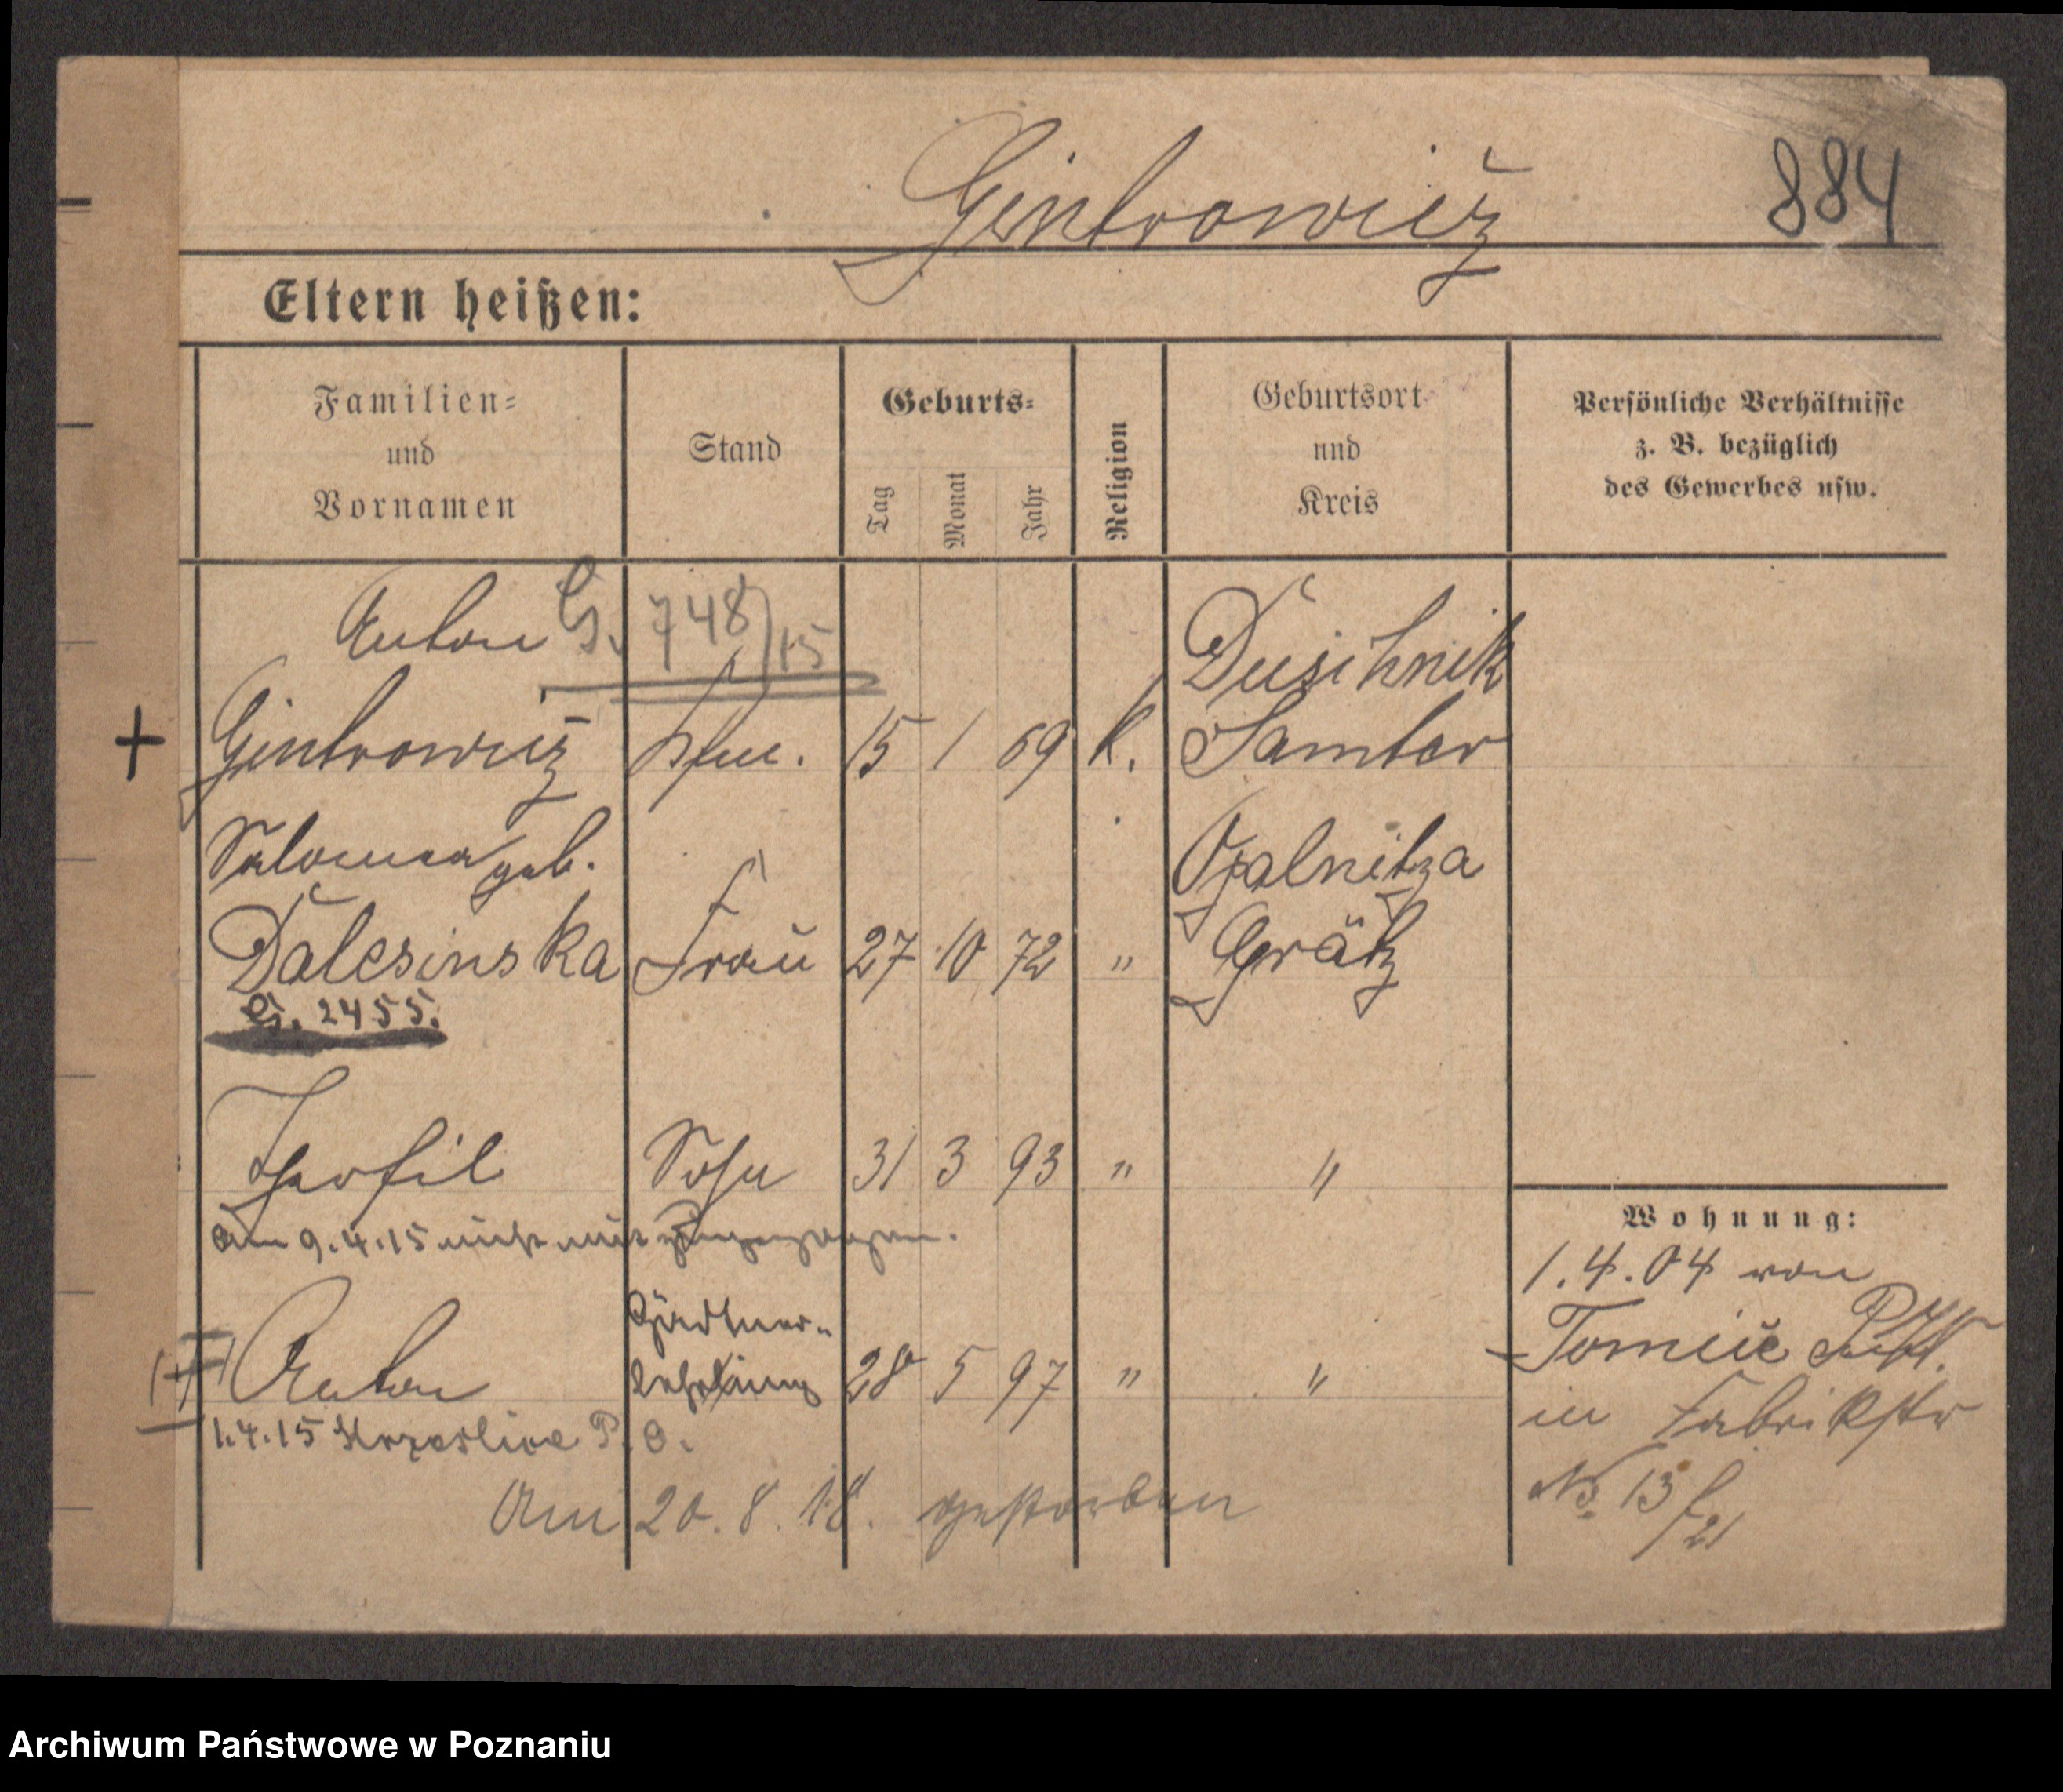 Gintrowicz 884
Eltern heißen:
Familien=
und
Vornamen
Stand
Geburts=
Tag
Monat
Jahr
Religion
Geburtsort
und
Kreis
Persönliche Verhältnisse
z. B. bezüglich
des Gewerbes usw.
Anton G. 748/15 Duschnik
+ Gintrowicz 15 1 69 k. Samter
Salomea geb. Opalnitza
Dalesinska Frau 27 10 72 " Grätz
G. 2455.
Teofil Sohn 31 3 93 " "
am 9.4.15 nicht mit zugezogen.
Gärtner-
Anton lehrling 28 5 97 " "
1.4.15 P. O.
Am 20. 8. 18. gestorben
Wohnung:
1.4.04 von
Tomice
in Fabrikstr
No 13
Archiwum Państwowe w Poznaniu